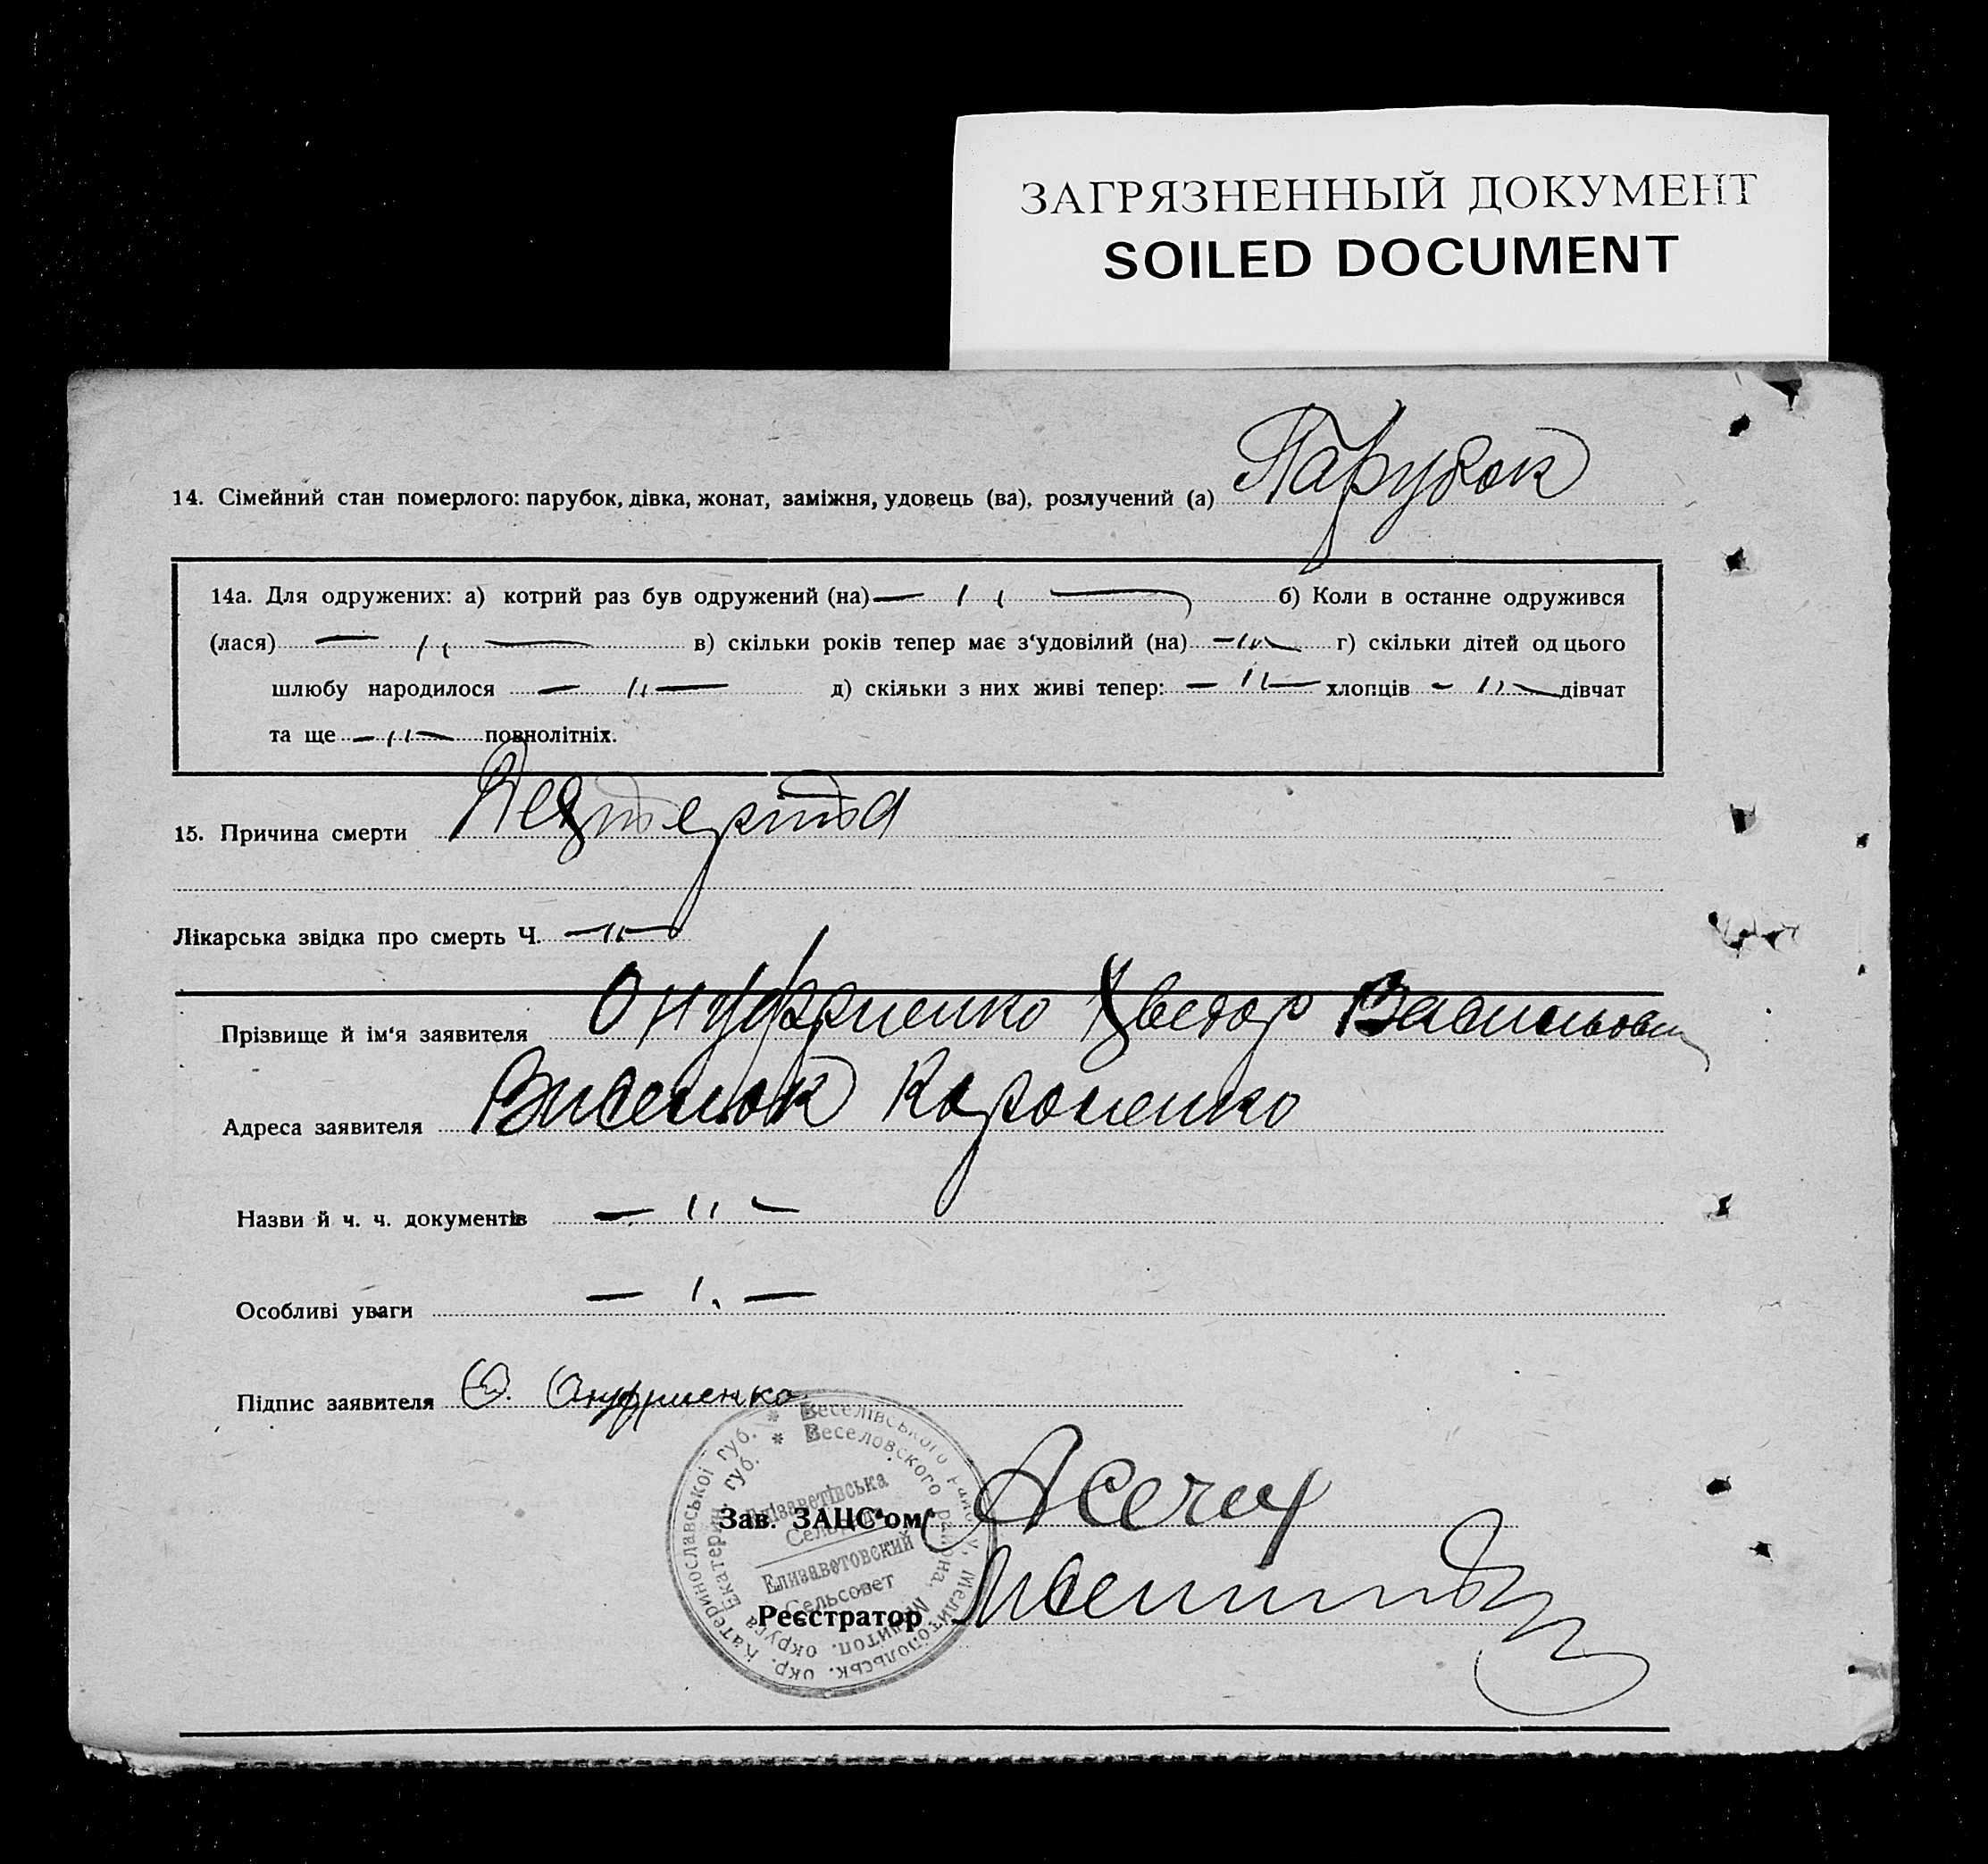 ЗАГРЯЗНЕННЫЙ ДОКУМЕНТ
SOILED DOCUMENT
14. Сімейний стан померлого: парубок, дівка, жонат, заміжня, удовець (ва), розлучений (а) Парубок
14а. Для одружених: а) котрий раз був одружений (на) — 〃 — б) Коли в останне одружився
(лася) — 〃 — в) скільки років тепер має з‘удовілий (на) — 〃 — г) скільки дітей од цього
шлюбу народилося — 〃 — д) скільки з них живі тепер: — 〃 — хлопців — 〃 — дівчат
та ще — 〃 — повнолітніх.
15. Причина смерти
Лікарська звідка про смерть Ч. — 〃 —
Прізвище й ім‘я заявителя Онуфриенко Хведор Васильович
Адреса заявителя Виселок Короленко
Назви й ч. ч. документів — 〃 —
Особливі уваги — 〃 —
Підпис заявителя Ф. Онуфриенко
Зав. ЗАЦС‘ом
Реєстратор
* Веселівського району, Мелитопольськ. окр. Катеринославської губ.
* Веселовского района, Мелитоп. округа Екатерин. губ.
Єлізаветівська
Сельрада
Елизаветовский
Сельсовет